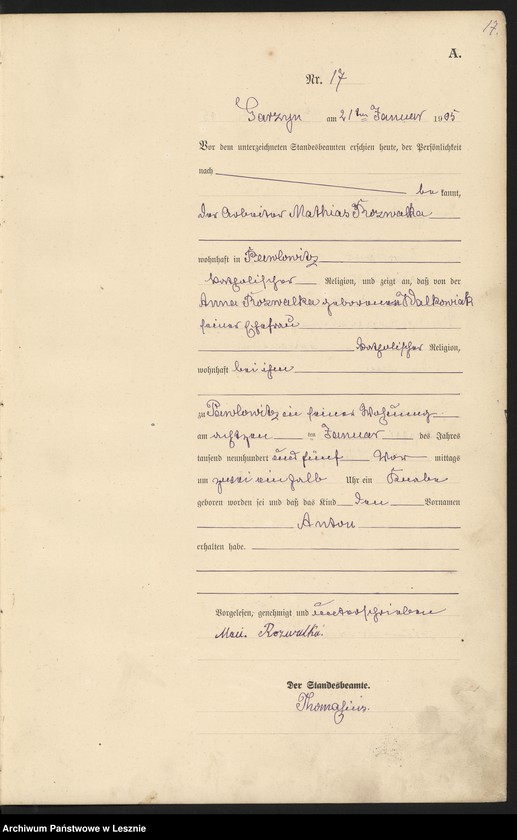 17.
A.
Nr. 17
Garzyn am 21ten Januar 1905
Vor dem unterzeichneten Standesbeamten erschien heute, der Persönlichkeit
nach
be kannt,
der Arbeiter Mathias Rozwalka
wohnhaft in Pawlowitz
katholischer Religion, und zeigt an, daß von der
Anna Rozwalka geborenen Walkowiak
seiner Ehefrau
katholischer Religion,
wohnhaft bei ihm
zu Pawlowitz in seiner Wohnung
am achtzen ten Januar des Jahres
tausend neunhundert und fünf Vor mittags
um zwei einhalb Uhr ein Knabe
geboren worden sei und daß das Kind den Vornamen
Anton
erhalten habe.
Vorgelesen, genehmigt und unterschrieben
Maci. Rozwalka.
Der Standesbeamte.
Thomasius.
Archiwum Państwowe w Lesznie